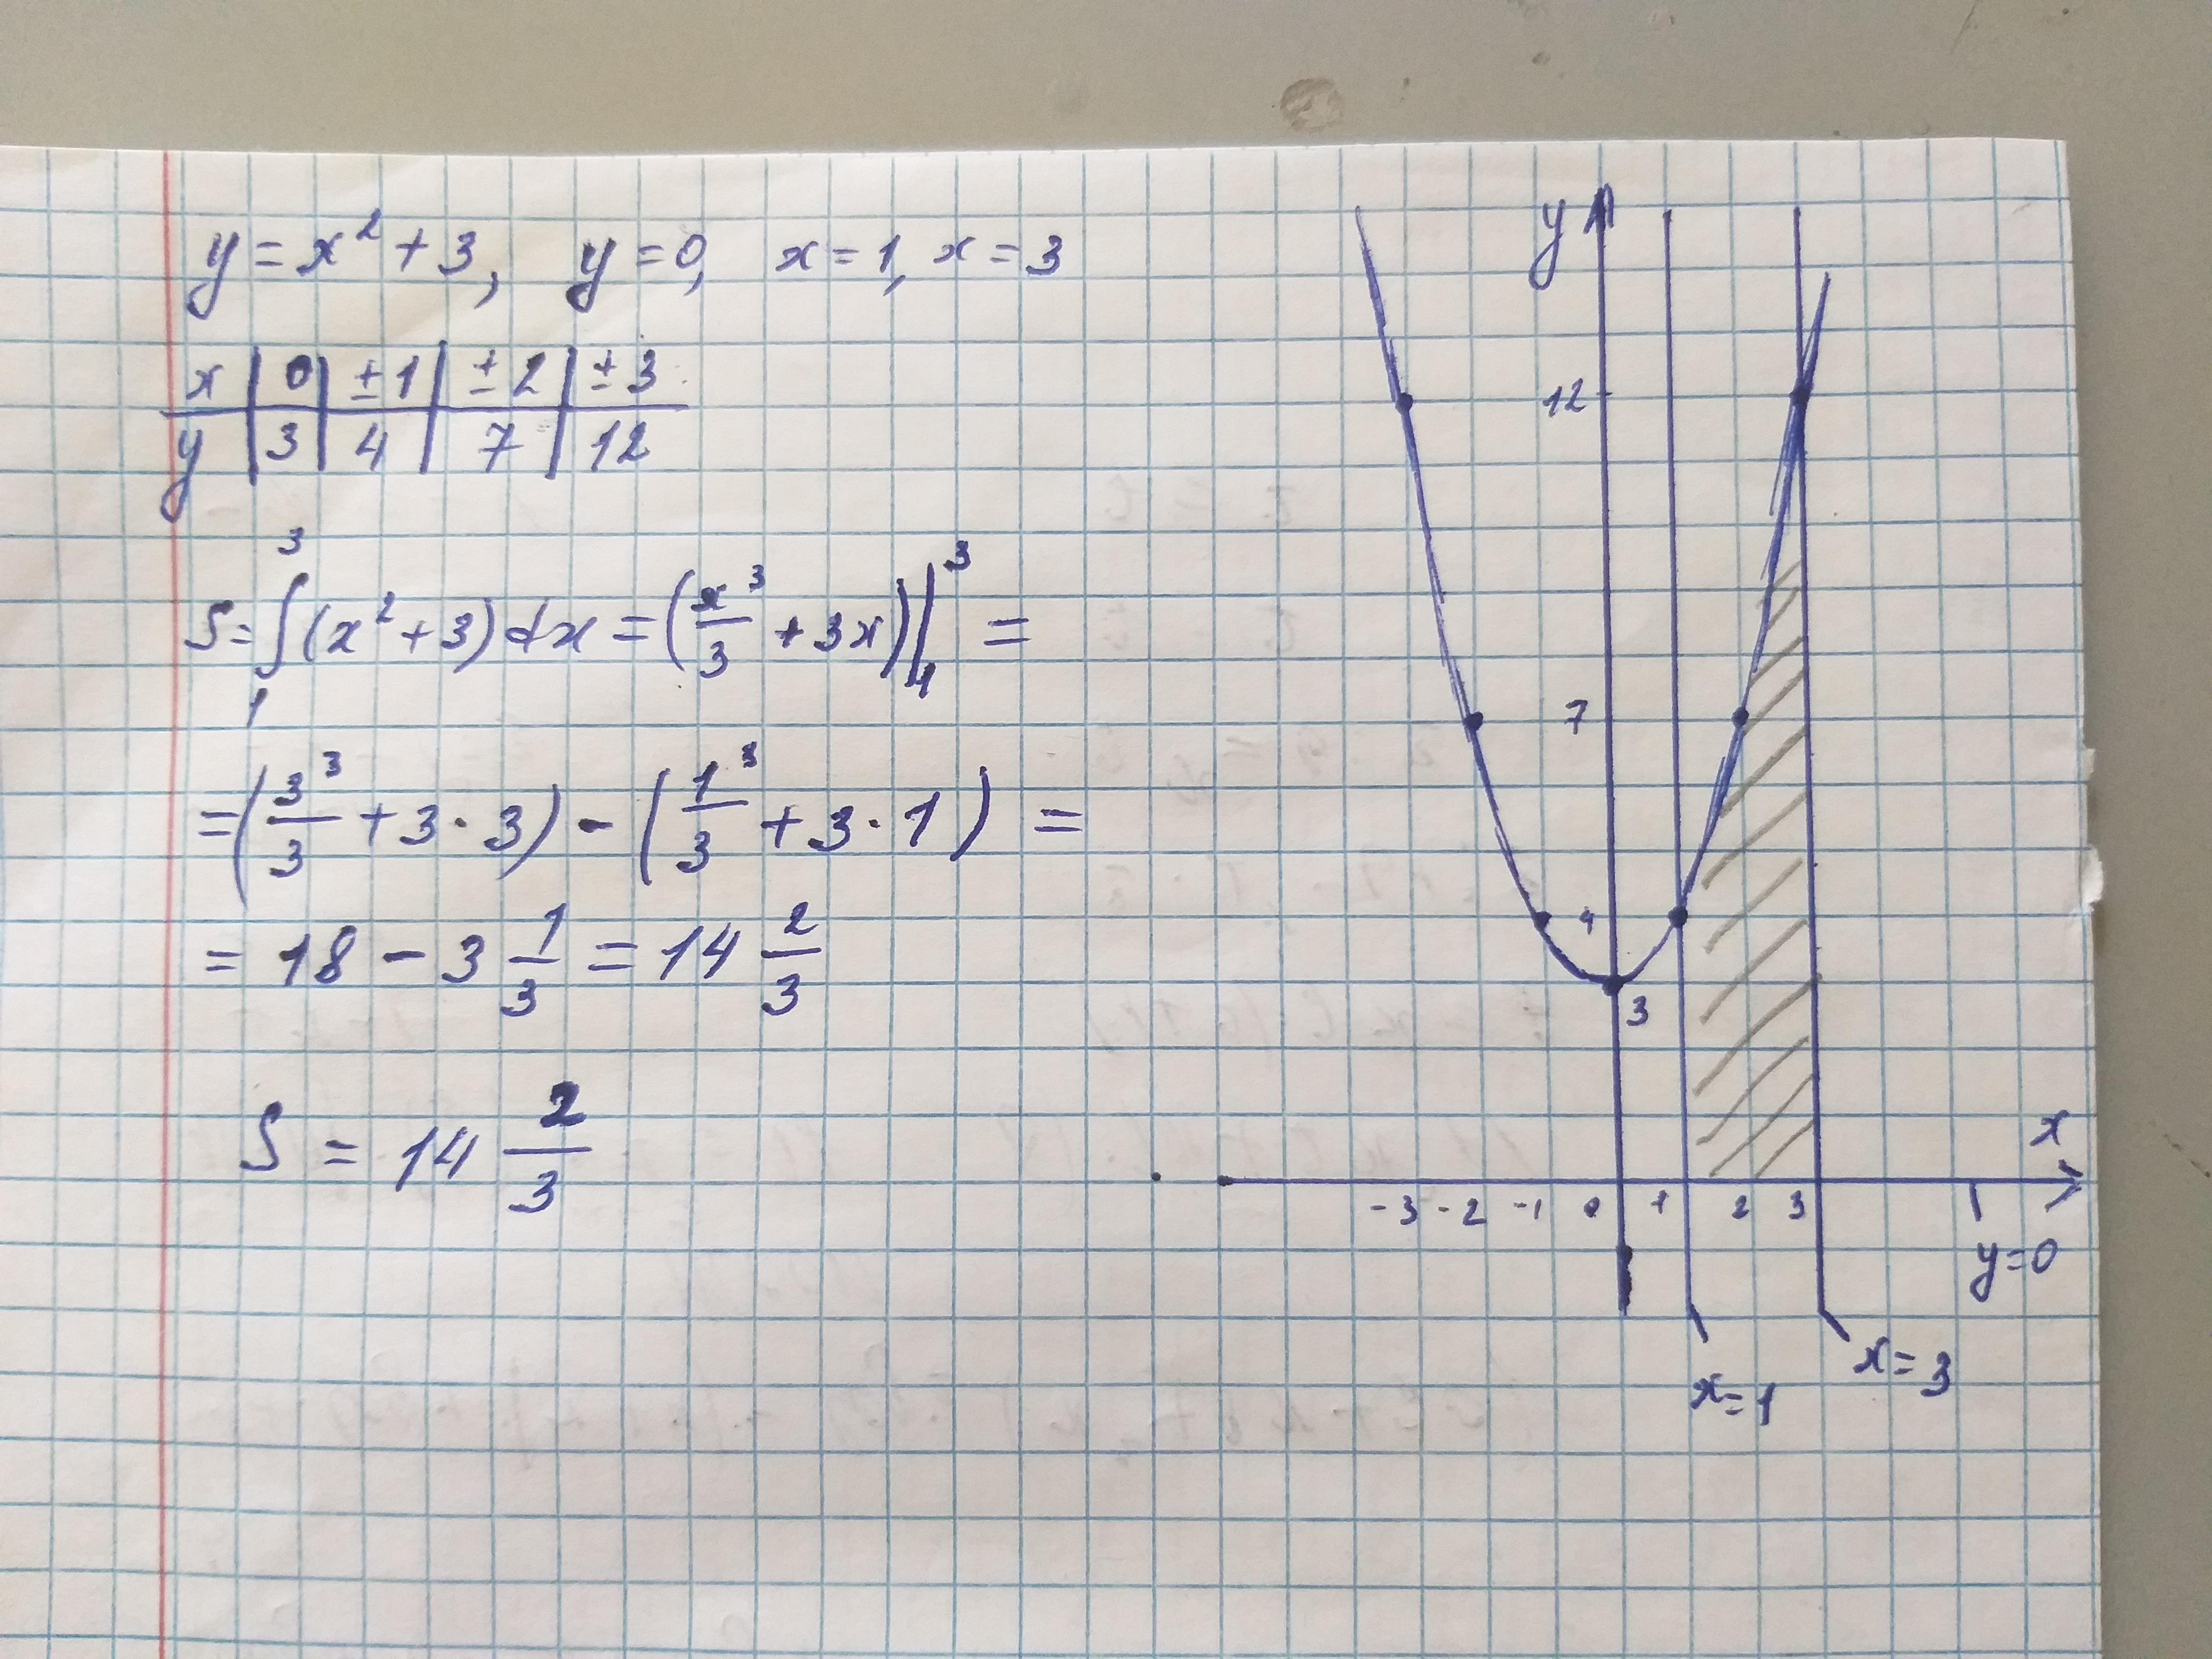 y = x² + 3, y = 0, x = 1, x = 3
x | 0 | ±1 | ±2 | ±3
y | 3 | 4 | 7 | 12
S = ∫₁³ (x² + 3) dx = (x³/3 + 3x) |₁³ =
= (3³/3 + 3 · 3) - (1³/3 + 3 · 1) =
= 18 - 3 1/3 = 14 2/3
S = 14 2/3
y
12
7
4
3
x
-3 -2 -1 0 1 2 3
y=0
x=3
x=1